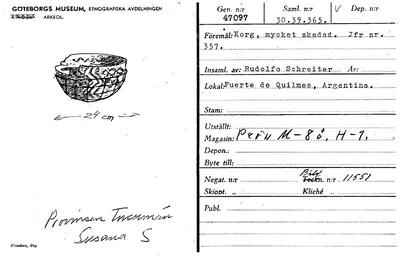 GÖTEBORGS MUSEUM, ETNOGRAFISKA AVDELNINGEN
ARKEOL.
← 24 cm →
Provinsen Tucumán
Susana S
Gen. n:r
47097
Saml. n:r
30.39.365.
V Dep. n:r
Föremål: Korg, mycket skadad. Jfr nr.
357.
Insaml. av: Rudolfo Schreiter År:
Lokal: Fuerte de Quilmes, Argentina.
Stam:
Utställt:
Magasin: Pröv M-8ö, H-1,
Depon.:
Byte till:
Negat. n:r Bild n:r 11551
Skiopt. „ Kliché „
Publ.